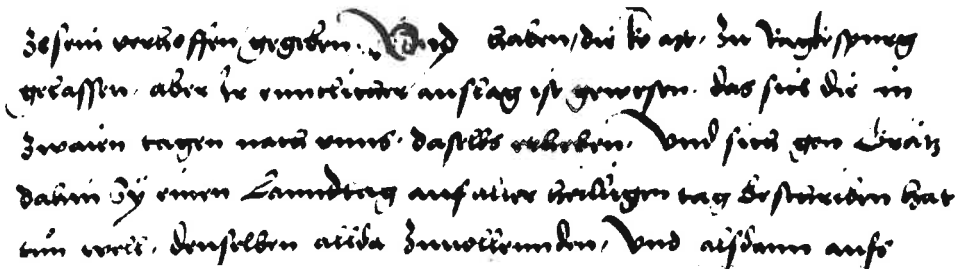 zesein verhoffen gegeben. Vnd haben, die kö mt. zu Augkspurg
gelassen. aber Ir enntlicher anslag ist gewesen. das sich die in
zwaien tagen nach vnns. daselbs erheben, Vnd sich gen Grätz
dahin Sy einen Lanndtag auf aller heiligen tag beschriben hat
tün well. denselben allda zuuollennden, Vnd alsdann aufs